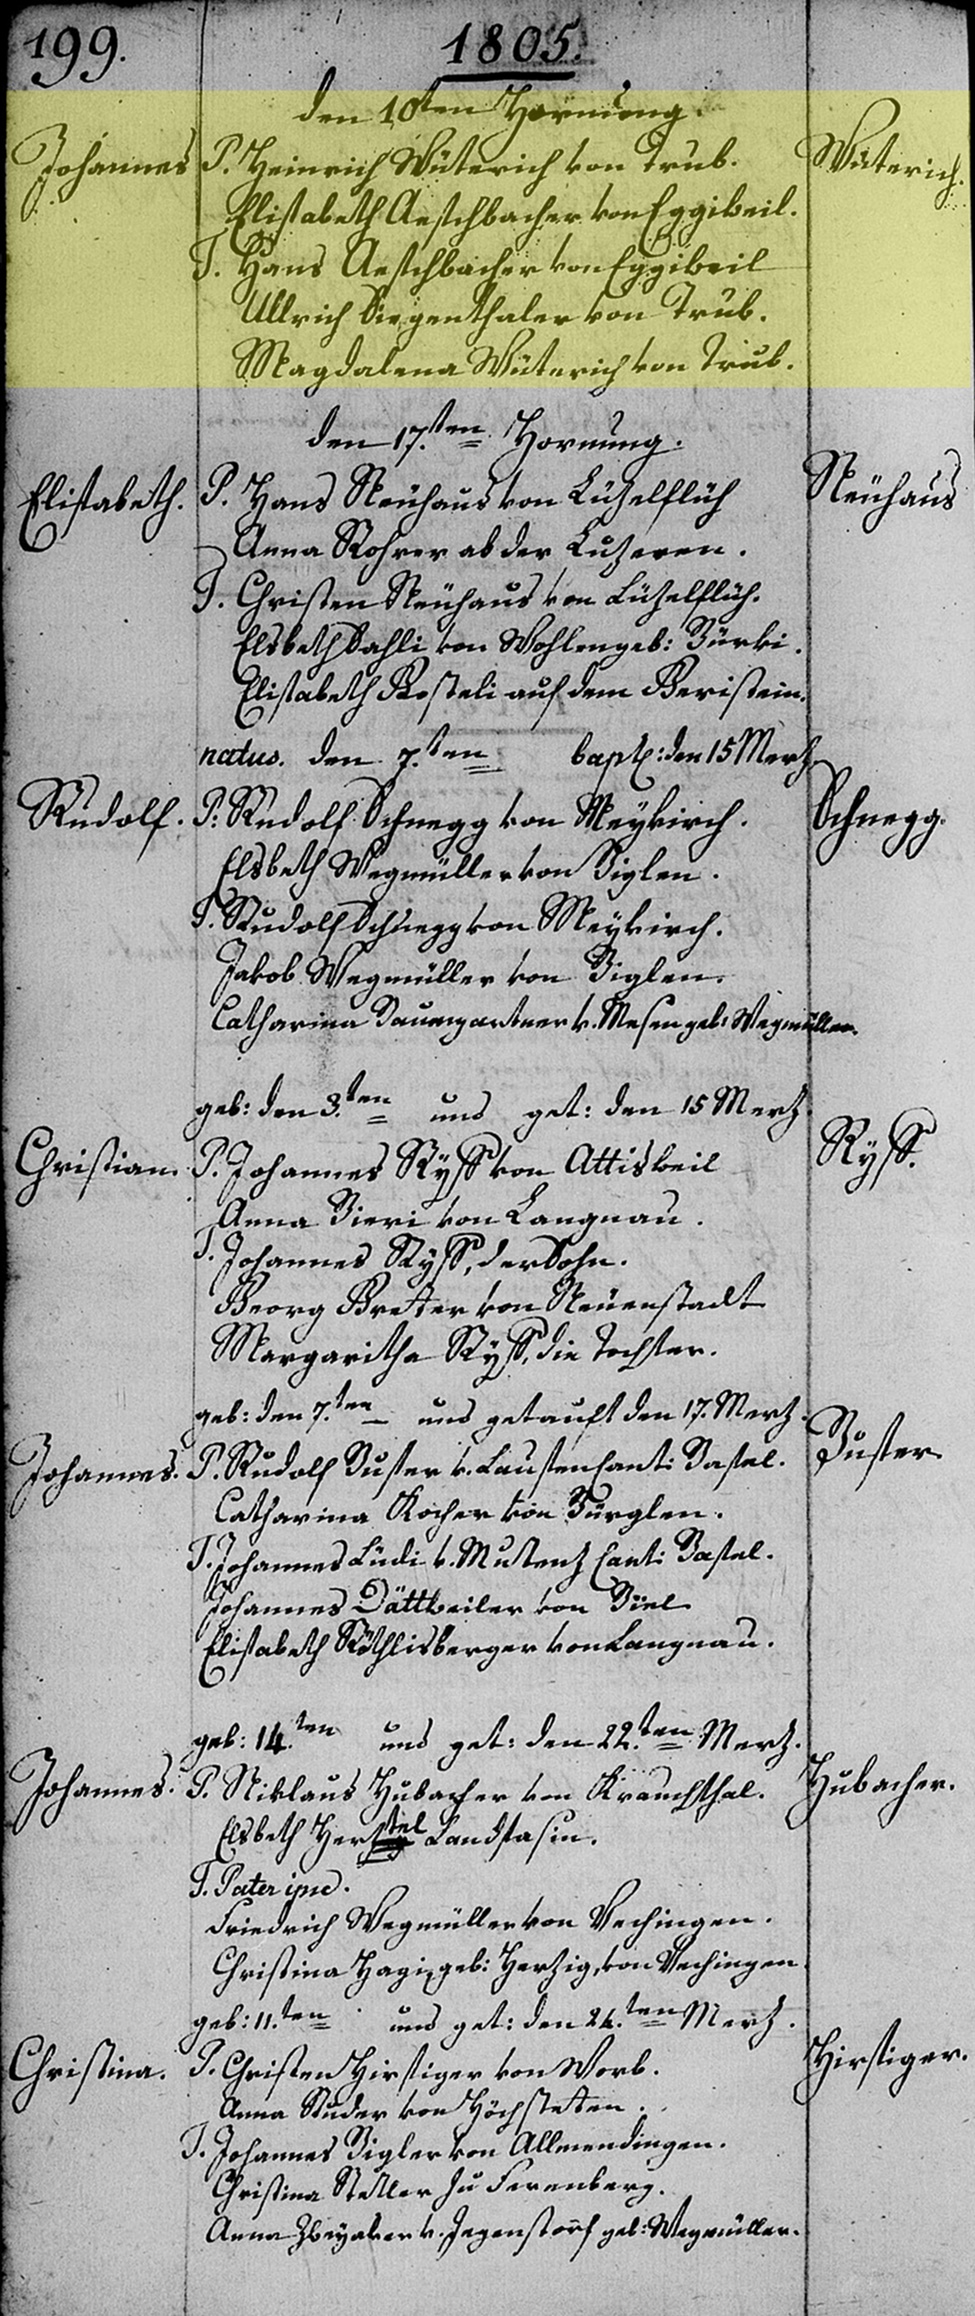 199. 1805.
den 10ten Hornung.
Johannes P. Heinrich Wüterich von Trub. Wüterich.
Elisabeth Aeschbacher von Eggiweil.
T. Hans Aeschbacher von Eggiweil
Ullrich Siegenthaler von Trub.
Magdalena Wüterich von Trub.
den 17.ten Hornung.
Elisabeth. P. Hans Neühaus von Lüzelflüh Neühaus
Anna Rohrer ab der Luzeren.
T. Christen Neühaus von Lüzelflüh.
Elsbeth Dahli von Wohlen geb: Bürki.
Elisabeth Kosteli auf dem Beristein.
natus. den 7.ten bapt: den 15 Merz
Rudolf. P. Rudolf Schnegg von Meykirch. Schnegg.
Elsbeth Wegmüller von Biglen.
T. Rudolf Schnegg von Meykirch.
Jakob Wegmüller von Biglen.
Catharina Baumgartner v. Mesen geb: Wegmüller.
geb: den 3.ten und get: den 15 Merz
Christian. P. Johannes Ryff von Attisweil Ryff.
Anna Bieri von Langnau.
T. Johannes Ryff, der Sohn.
Georg Bretter von Neüenstadt
Margaritha Ryff, die Tochter.
geb: den 7.ten und getauft den 17. Merz.
Johannes. P. Rudolf Buster v. Lausten Cant: Basel. Buster.
Catharina Kocher von Bürglen.
T. Johannes Lüdi v. Mutenz Cant: Basel.
Johannes Dättweiler von Biel
Elisabeth Röthlisberger von Langnau.
geb: 14.ten und get: den 22.ten Merz.
Johannes. P. Niklaus Hubacher von Krauchthal. Hubacher.
Elsbeth Landsasin.
T. Pater ipse.
Friedrich Wegmüller von Vechingen.
Christina Hagi, geb: Herzig, von Vechingen
geb: 11.ten und get: den 24.ten Merz.
Christina. P. Christen Hirstiger von Worb. Hirstiger.
Anna Studer von Höchstetten.
T. Johannes Bigler von Allmendingen.
Christina Stettler zu Ferenberg.
Anna Zweyaker v. Jegenstorf geb: Wegmüller.